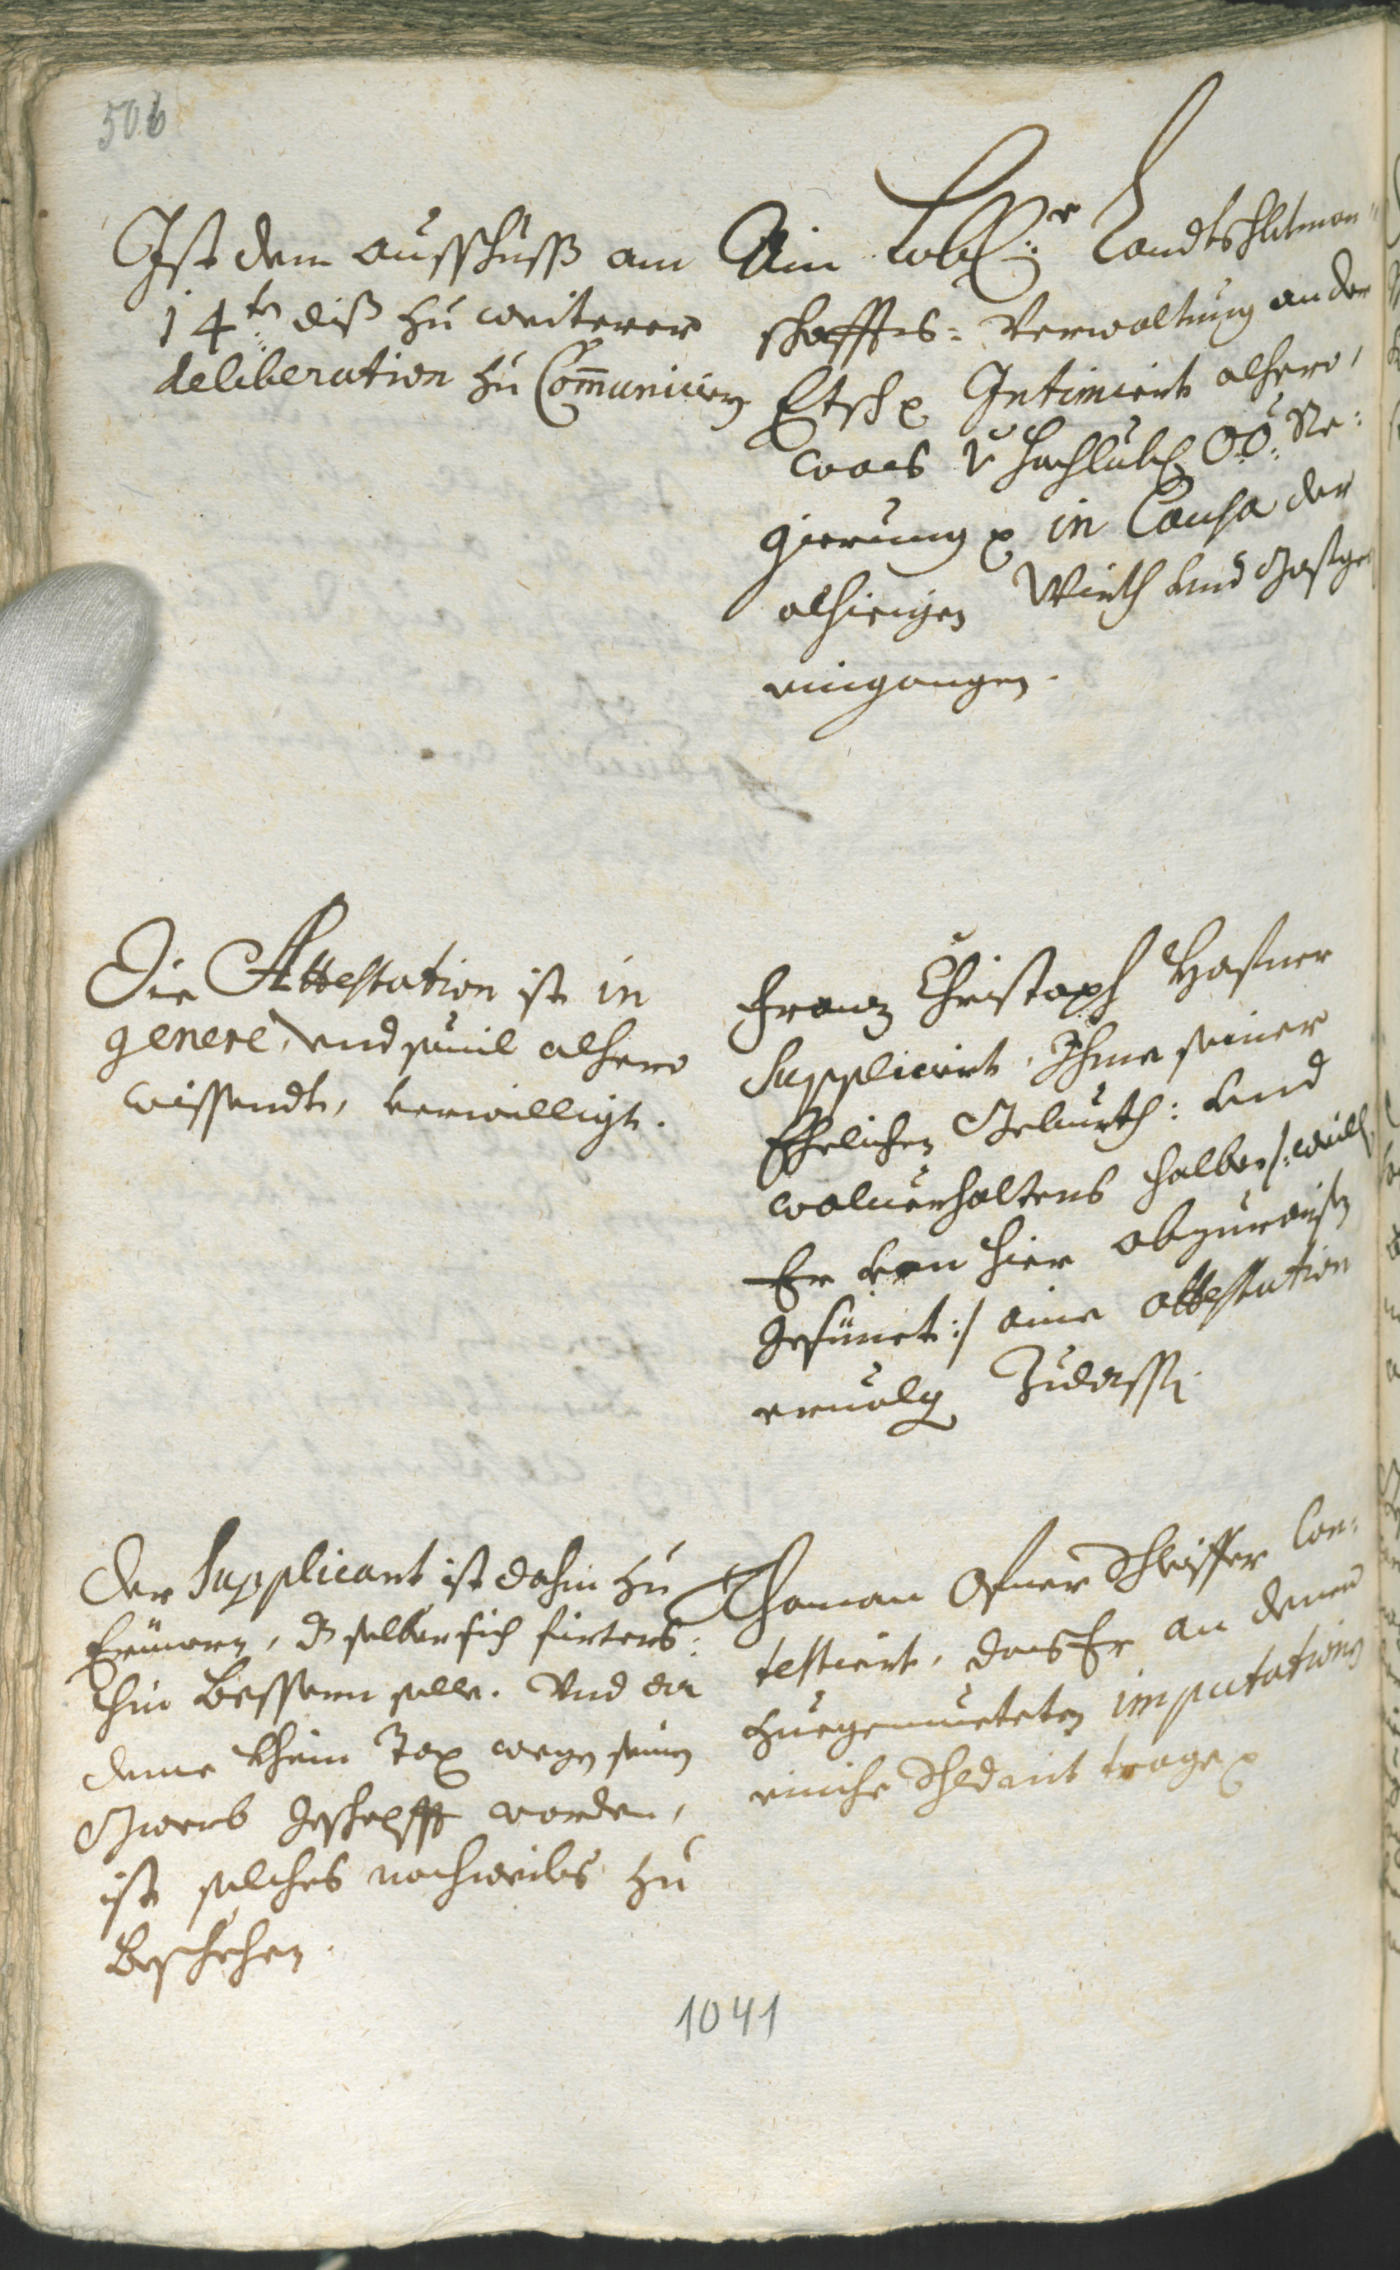 506
Ist dem ausschuss am
14ten diß zu weiterer
deliberation zu Com̄uniciern
Ain Lobl: Landtshbtman=
schaffts= Verwaltung an der
Etsch Intimiert alhero,
waes v Hochlobl OÖ: Re=
gierung in Causa der
alhieigen Wirth und Gastge
eingangen.
Die Attestation ist in
genere, und souil alhero
wissendt, verwilligt.
Franz Christoph Hafner
Supplicirt, Ihme seiner
Ehelichen Geburth: und
wolverhaltens halber /: weill
Er von hier abzuraisen
gesünet :/ eine attestation
ervolg Zulassen
Der Supplicant ist dahin zu
Erinern, dz selber sich firters=
hin Bessern solle. Und die
deme khein Tax wegen seines
Gwerb geschepfft worden,
ist solches nachmals zu
Beschehen.
Thoman Ofner Schleiffer Con=
testiert, das Er an denen
zuegemueteten imputations
einiche Schuldnit trage
1041